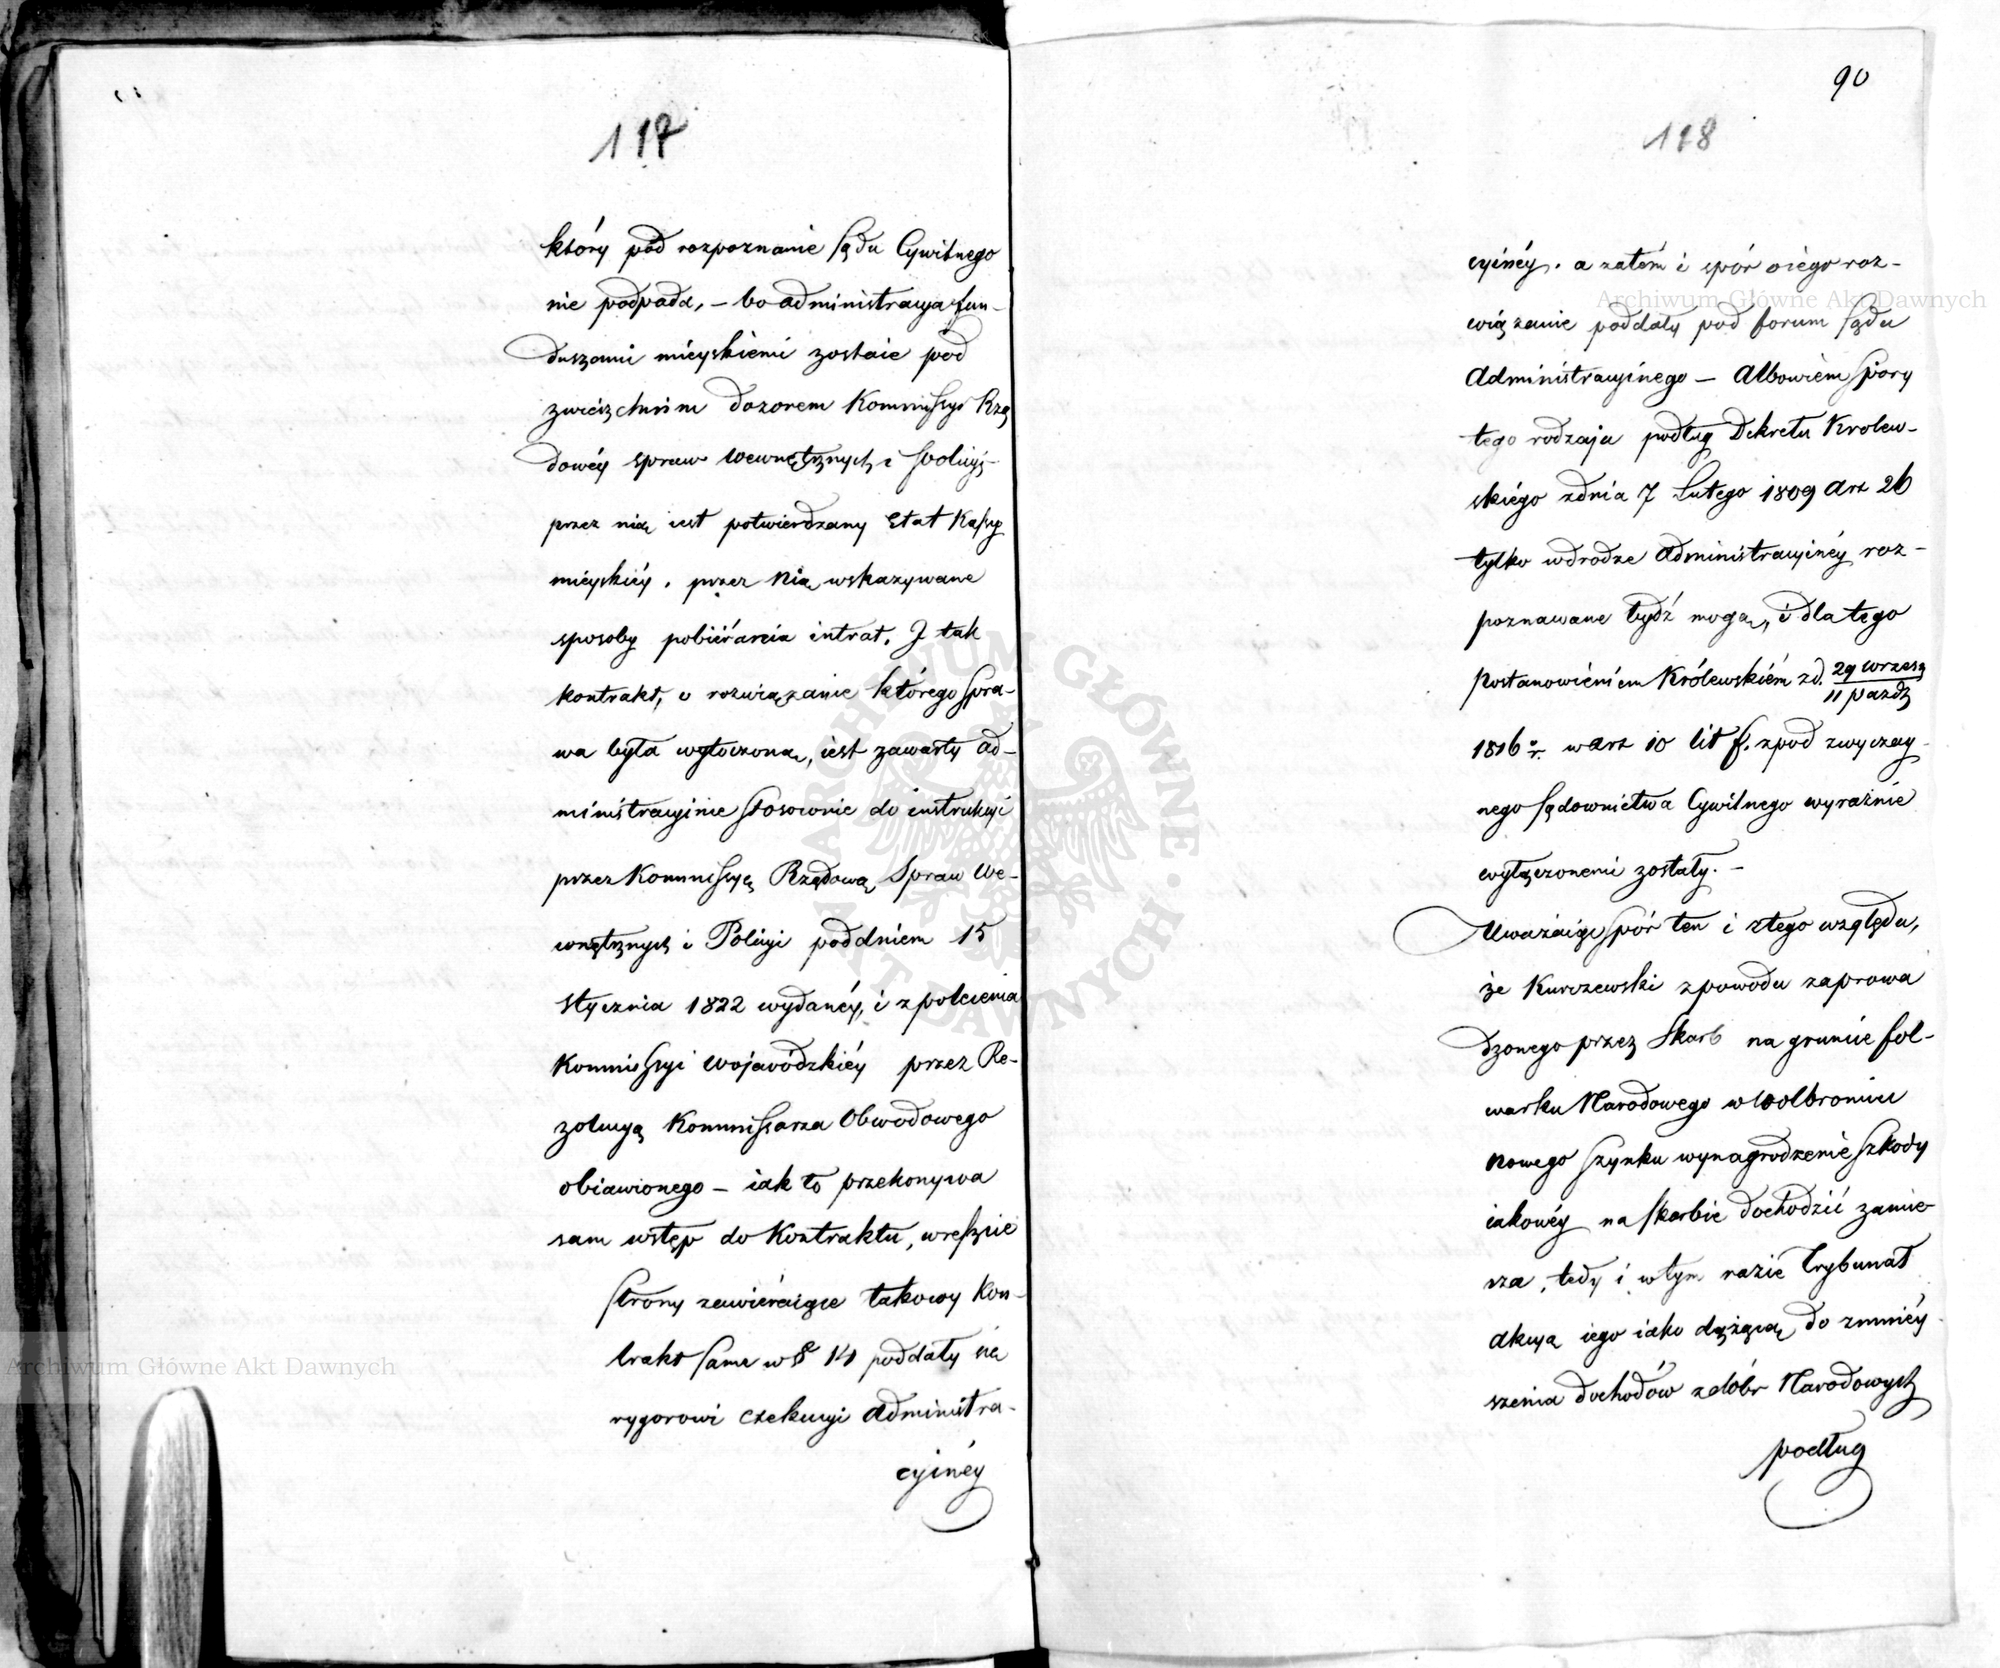 117
który pod rozpoznanie Sądu Cywilnego
nie podpada, – bo administracya fun-
duszami mieyskiemi zostaie pod
zwierzchnim dozorem Kommissyi Rzą
dowéy spraw wewnętrznych i Policyi,
przez nią iest potwierdzany Etat Kassy
mieyskiéy, przez nią wskazywane
sposoby pobiérania intrat. I tak
kontrakt, o rozwiązanie którego spra-
wa była wytoczona, iest zawarty ad-
ministracyinie stosownie do instrukcyi
przez Kommissyą Rządową Spraw We-
wnętrznych i Policyi pod dniem 15
stycznia 1822 wydanéy, i z polecenia
Kommissyi Wojewódzkiéy przez Re-
zolucyą Kommissarza Obwodowego
obiawionego – iak to przekonywa
sam wstęp do Kontraktu, wreszcie
strony zawiéraiące takowy Kon-
trakt same w § 14 poddały się
rygorowi exekucyi administra-
cyinéy
90
118
cyinéy. a zatém i spór oiego roz-
wiązanie poddały pod forum Sądu
Administracyinego – Albowiem spory
tego rodzaju podług Dekretu Krolew-
skiégo zdnia 7 Lutego 1809 art 26
tylko wdrodze administracyinéy roz-
poznawane bydź mogą, i dla tego
postanowieniem Królewskiém zd. 29 wrzesz
11 pazdz
1816 r. w art 10 lit f. zpod zwyczay-
nego sądownictwa Cywilnego wyraźnie
wyłączonemi zostały. –
Uważaiąc spór ten i ztego względu,
że Kurczewski zpowodu zaprowa
dzonego przez Skarb na gruncie fol-
warku Narodowego w Wolbromiu
nowego szynku wynagrodzenie szkody
iakowéy na skarbie dochodzić zamie-
rza, tedy i wtym razie Trybunał
akcyą iego iako dążącą do zmniéy
szenia dochodów zdóbr Narodowych
podług
Archiwum Główne Akt Dawnych
Archiwum Główne Akt Dawnych
ARCHIWUM GŁÓWNE AKT DAWNYCH